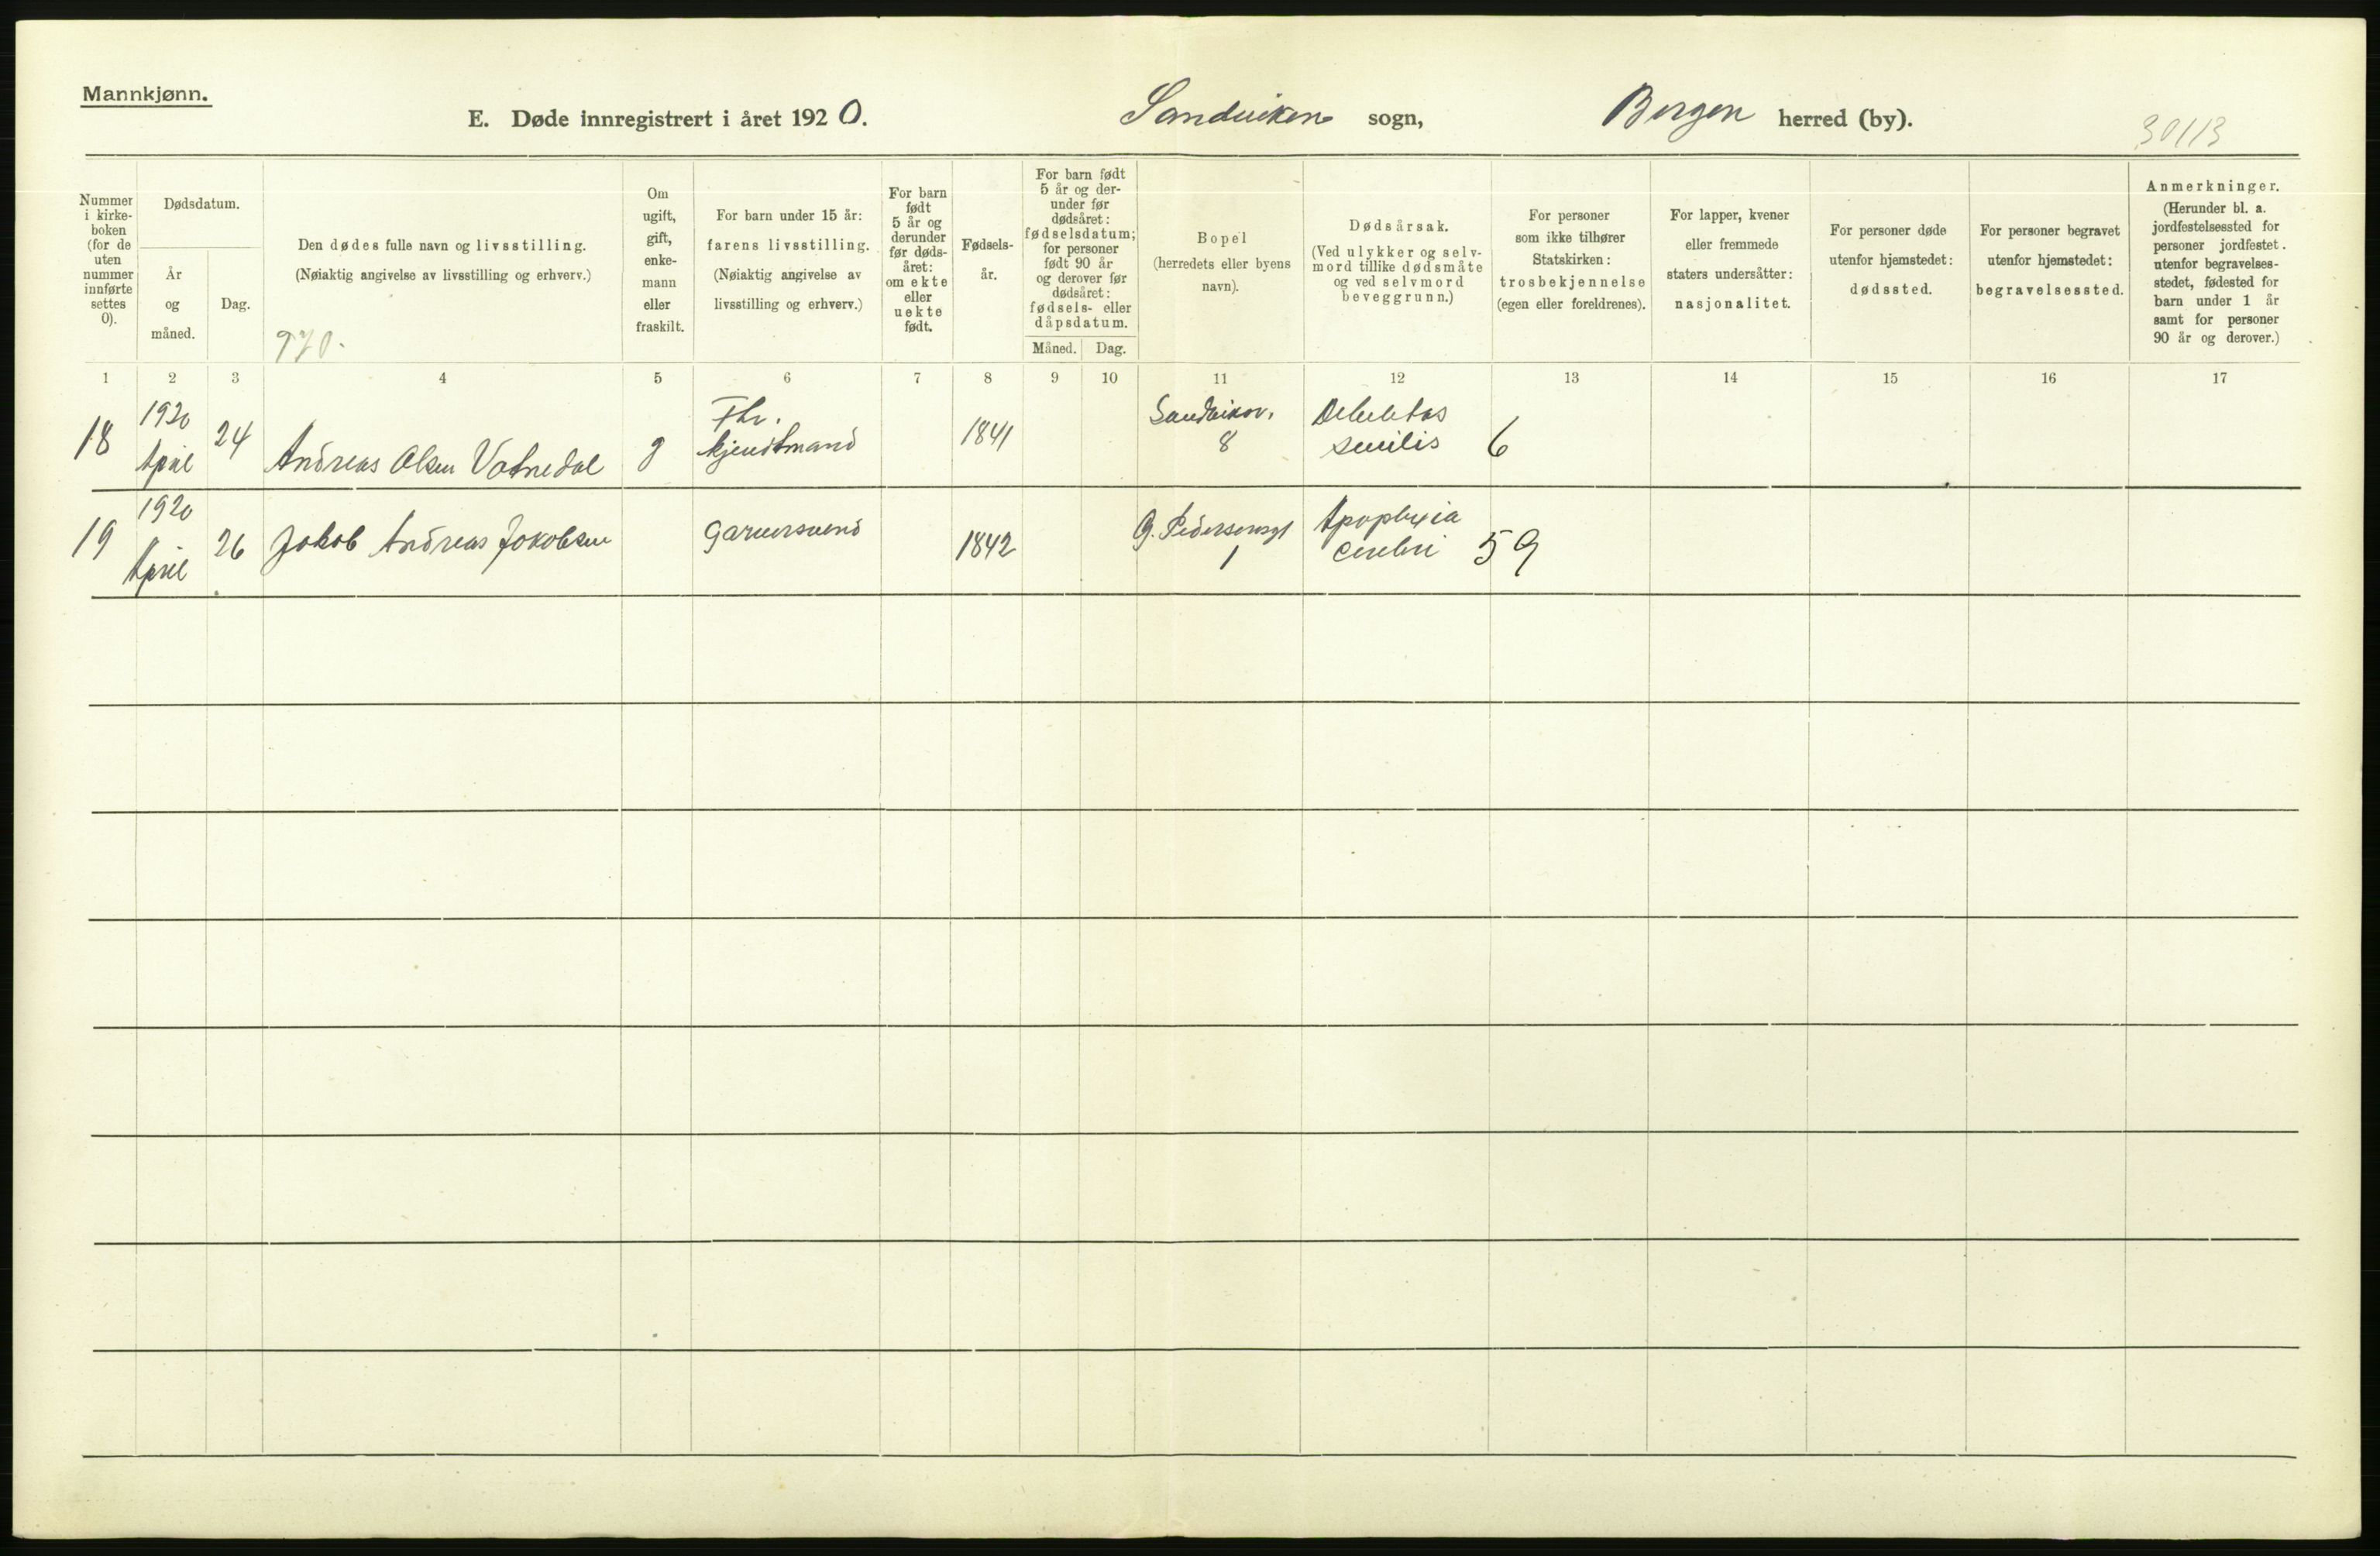 Mannkjønn.
E. Døde innregistrert i året 1920. Sandviken sogn, Bergen herred (by).
30113
Nummer i kirke-boken (for de uten nummer innførte settes 0).
Dødsdatum.
År og måned.
Dag.
Den dødes fulle navn og livsstilling.
(Nøiaktig angivelse av livsstilling og erhverv.)
970.
Om ugift, gift, enke-mann eller fraskilt.
For barn under 15 år: farens livsstilling.
(Nøiaktig angivelse av livsstilling og erhverv.)
For barn født 5 år og derunder før døds-året: om ekte eller uekte født.
Fødsels-år.
For barn født 5 år og der-under før dødsåret: fødselsdatum; for personer født 90 år og derover før dødsåret: fødsels- eller dåpsdatum.
Måned. Dag.
Bopel
(herredets eller byens navn).
Dødsårsak.
(Ved ulykker og selv-mord tillike dødsmåte og ved selvmord beveggrunn.)
For personer som ikke tilhører Statskirken: trosbekjennelse (egen eller foreldrenes).
For lapper, kvener eller fremmede staters undersåtter: nasjonalitet.
For personer døde utenfor hjemstedet: dødssted.
For personer begravet utenfor hjemstedet: begravelsessted.
Anmerkninger.
(Herunder bl. a. jordfestelsessted for personer jordfestet utenfor begravelses-stedet, fødested for barn under 1 år samt for personer 90 år og derover.)
1 2 3 4 5 6 7 8 9 10 11 12 13 14 15 16 17
18 1920 April 24 Andreas Olsen Vatnedal g Fhv. kjendtmand 1841 Sandviksv. 8 Debilitas senilis 6
19 1920 April 26 Jakob Andreas Jakobsen Garversvend 1842 G. Pedersensgt 1 Apoplexia cerebri 59